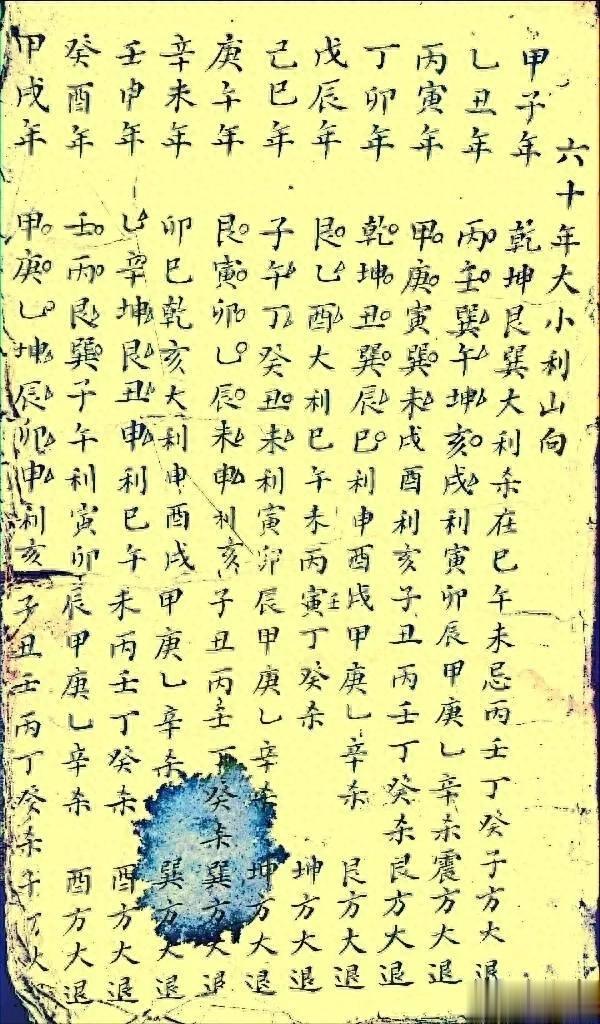 六十年大小利山向
甲子年 乾坤艮巽大利杀在巳午未忌丙壬丁癸子方大退
乙丑年 丙壬巽午坤亥戌利寅卯辰甲庚乙辛杀震方大退
丙寅年 甲庚寅巽未戌酉利亥子丑丙壬丁癸杀艮方大退
丁卯年 乾坤丑巽辰巳利申酉戌甲庚乙辛杀艮方大退
戊辰年 艮乙酉大利巳午未丙寅壬丁癸杀坤方大退
己巳年 子午丁癸丑未利寅卯辰甲庚乙辛杀坤方大退
庚午年 艮寅卯乙辰未申利亥子丑丙壬丁癸杀巽方大退
辛未年 卯巳乾亥大利申酉戌甲庚乙辛杀巽方大退
壬申年 乙辛坤艮丑申利巳午未丙壬丁癸杀酉方大退
癸酉年 壬丙艮巽子午利寅卯辰甲庚乙辛杀酉方大退
甲戌年 甲庚乙坤辰卯申利亥子丑壬丙丁癸杀子方大